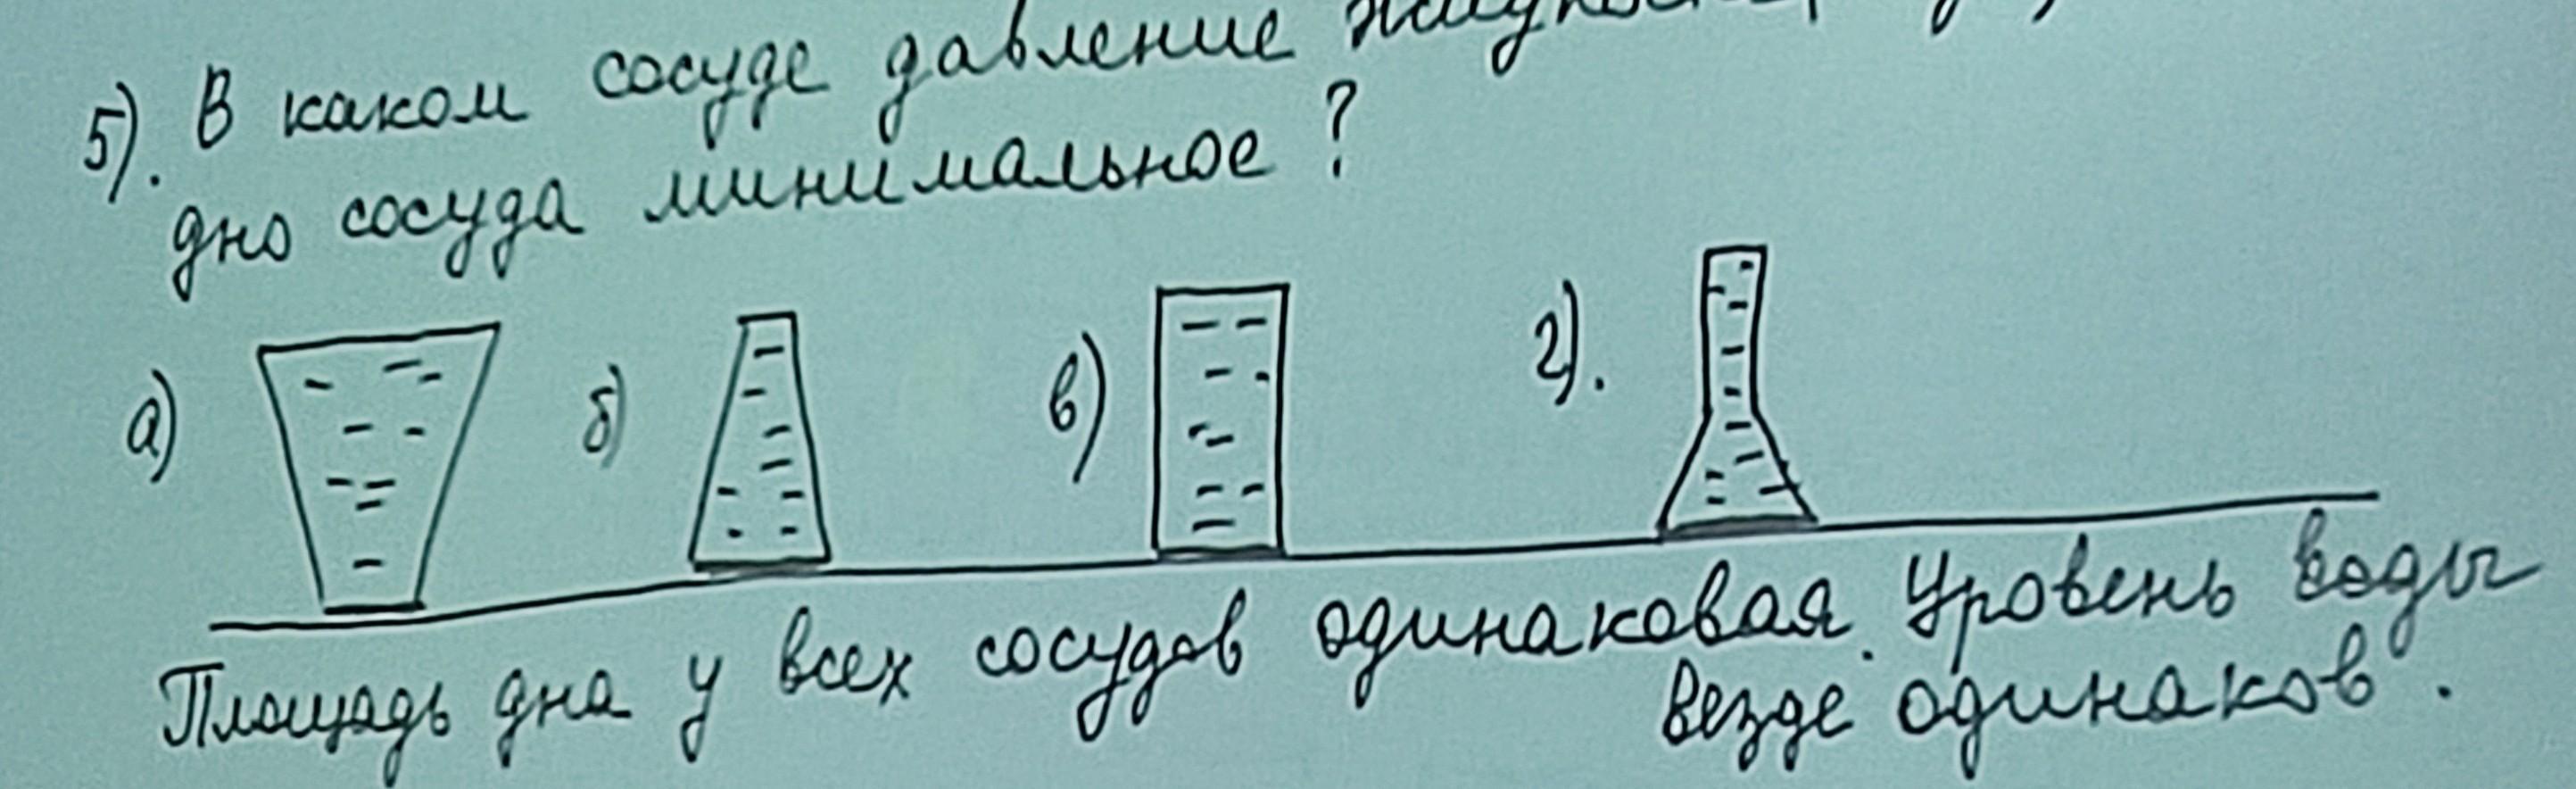 5). В каком сосуде давление жидкости
дно сосуда минимальное?
а) б) в) г).
Площадь дна у всех сосудов одинаковая. Уровень воды
везде одинаков.